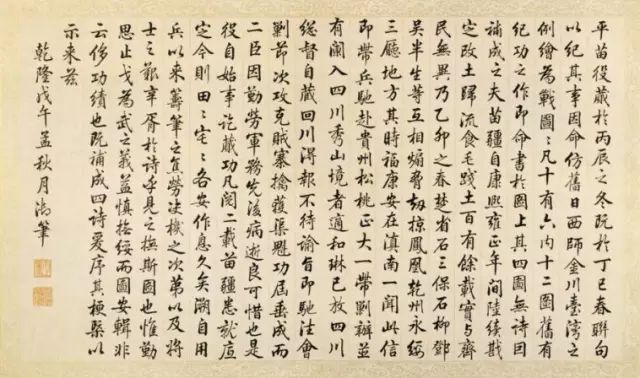 平苗役蕆於丙辰之冬既於丁巳春聯句
以紀其事因命仿舊日西師金川臺灣之
例繪為戰圖〻凡十有六內十二圖舊有
紀功之作即命書於圖上其四圖無詩因
補成之夫苗疆自康熙雍正年間陸續戡
定改土歸流食毛踐土百有餘載實与齊
民無異乃乙卯之春楚省石三保石柳鄧
吳半生等互相煽脅刼掠鳳凰乾州永綏
三廳地方其時福康安在滇南一聞此信
即帶兵馳赴貴州松桃正大一帶剿辦並
有闌入四川秀山境者適和琳已放四川
總督自藏回川淂報不待諭旨即馳往會
剿節次攻克賊寨擒獲渠魁功屆垂成而
二臣因勤勞軍務先後病逝良可惜也是
役自始事訖蕆功凡閱二載苗疆悉就底
定今則田〻宅〻各安作息久矣溯自用
兵以來籌筆之宜勞決機之次第以及將
士之艱辛胥於詩乎見之撫斯圖也惟勤
思止戈為武之義益慎撫綏而圖安輯非
云侈功績也既補成四詩爰序其梗槩以
示來茲
乾隆戊午孟秋月御筆